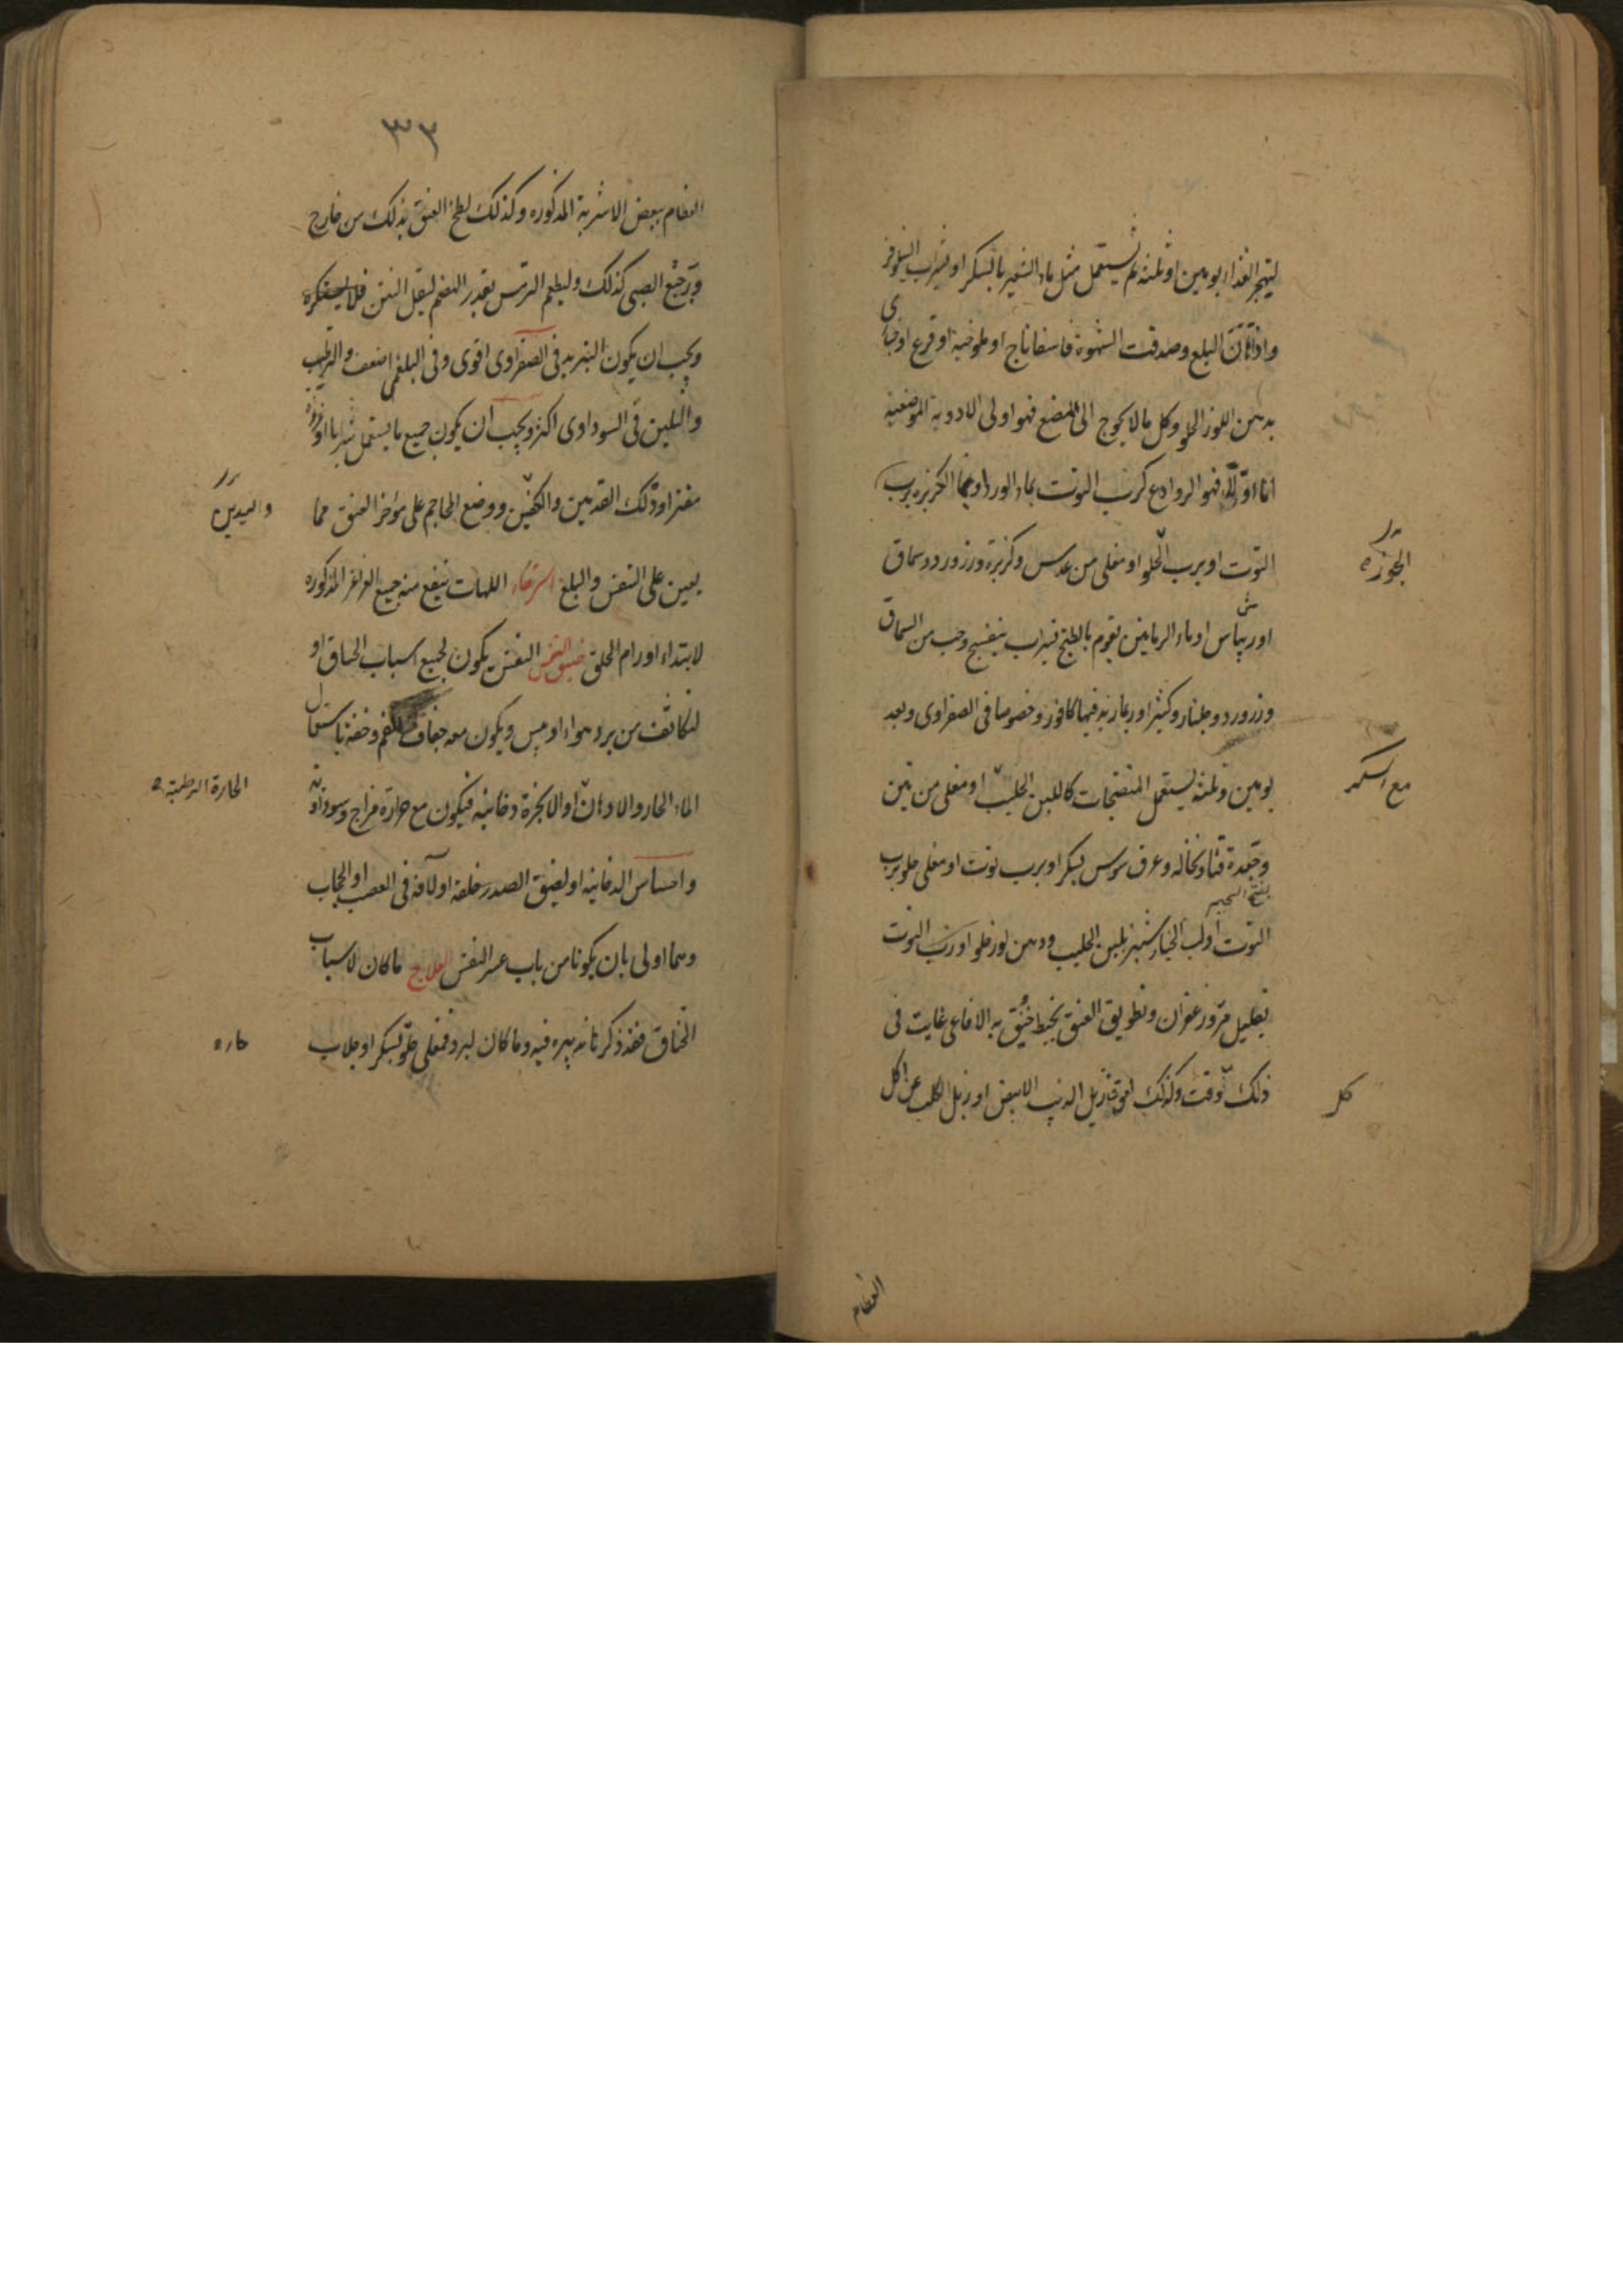 ليهجر الغذاء يومين او ثلثة ثم يستعمل مثل ماء الشعير بالسكر او بشراب النيلوفر
واذا البلع وصدقت الشهوة فاسفاناخ او ملوخية او قرع او خبازى
بدهن اللوز الحلو وكل مالا يحوج الى المضغ فهو اولى الادوية الموضعية
اما اولا فهو الروادع كرب التوت بماء الورد او بماء الكزبرة برب
الجوزه
التوت او برب الحلو او مغلى من عدس وكزبرة وزرورد وسماق
او ريباس او ماء الرمانين يقوم بالطبخ بشراب بنفسج وحب من السماق
وزرورد وجلنار وكثيرا وربما زيد فيها كافور وخصوصا فى الصفراوى وبعد
يومين وثلثة يستعمل المنضجات كاللبن الحليب او مغلى من تين
مع السكر
وجعدة قنا ونخاله وعرق سوس بسكر او برب توت او مغلى حلو برب
بفتح الجيم
التوت او لب الخيار شنبر بلبن الحليب ودهن لوز حلو او رب التوت
بقليل مر وزعفران وتطويق العنق بخيط خنق به الافاعى غايت فى
ذلك كل وقت وكذلك لعوق زبل الذيب الابيض او زبل الكلب عن اكل
كل
العظام
٣٢
العظام ببعض الاشربة المذكوره وكذلك لطخ العنق بذلك من خارج
ورجيع الصبى كذلك وليطعم الترمس بقدر الهضم ليقل النتن فلا يستكره
ويجب ان يكون التبريد فى الصفراوى اقوى وفى البلغمى اضعف والترطيب
والتليين فى السوداوى اكثر ويجب ان يكون جميع ما يستعمل شربا او غرغرة
مفترا ودلك القدمين والكفين ووضع المحاجم على مؤخر العنق مما
واليدين
يعين على التنفس والبلع استرخاء اللهات ينفع منه جميع الغراغر المذكوره
لابتداء اورام الحلق ضيق النفس النفس يكون لجميع اسباب الخناق او
لتكاثف من برد هواء او يبس ويكون معه جفاف الفم وخفة باستعمال
الماء الحار والادهان او لابخرة دخانيه فيكون مع حرارة مزاج وسوداوية
الحارة الرطبة
واحساس الدخانيه او لضيق الصدر خلقة او لآفة فى العصب او الحجاب
وهما اولى بان يكونا من باب عسر النفس العلاج ما كان لاسباب
الخناق فقد ذكرنا تدبيره فيه وما كان لبرد فمغلى حلو بسكر او جلاب
حاره